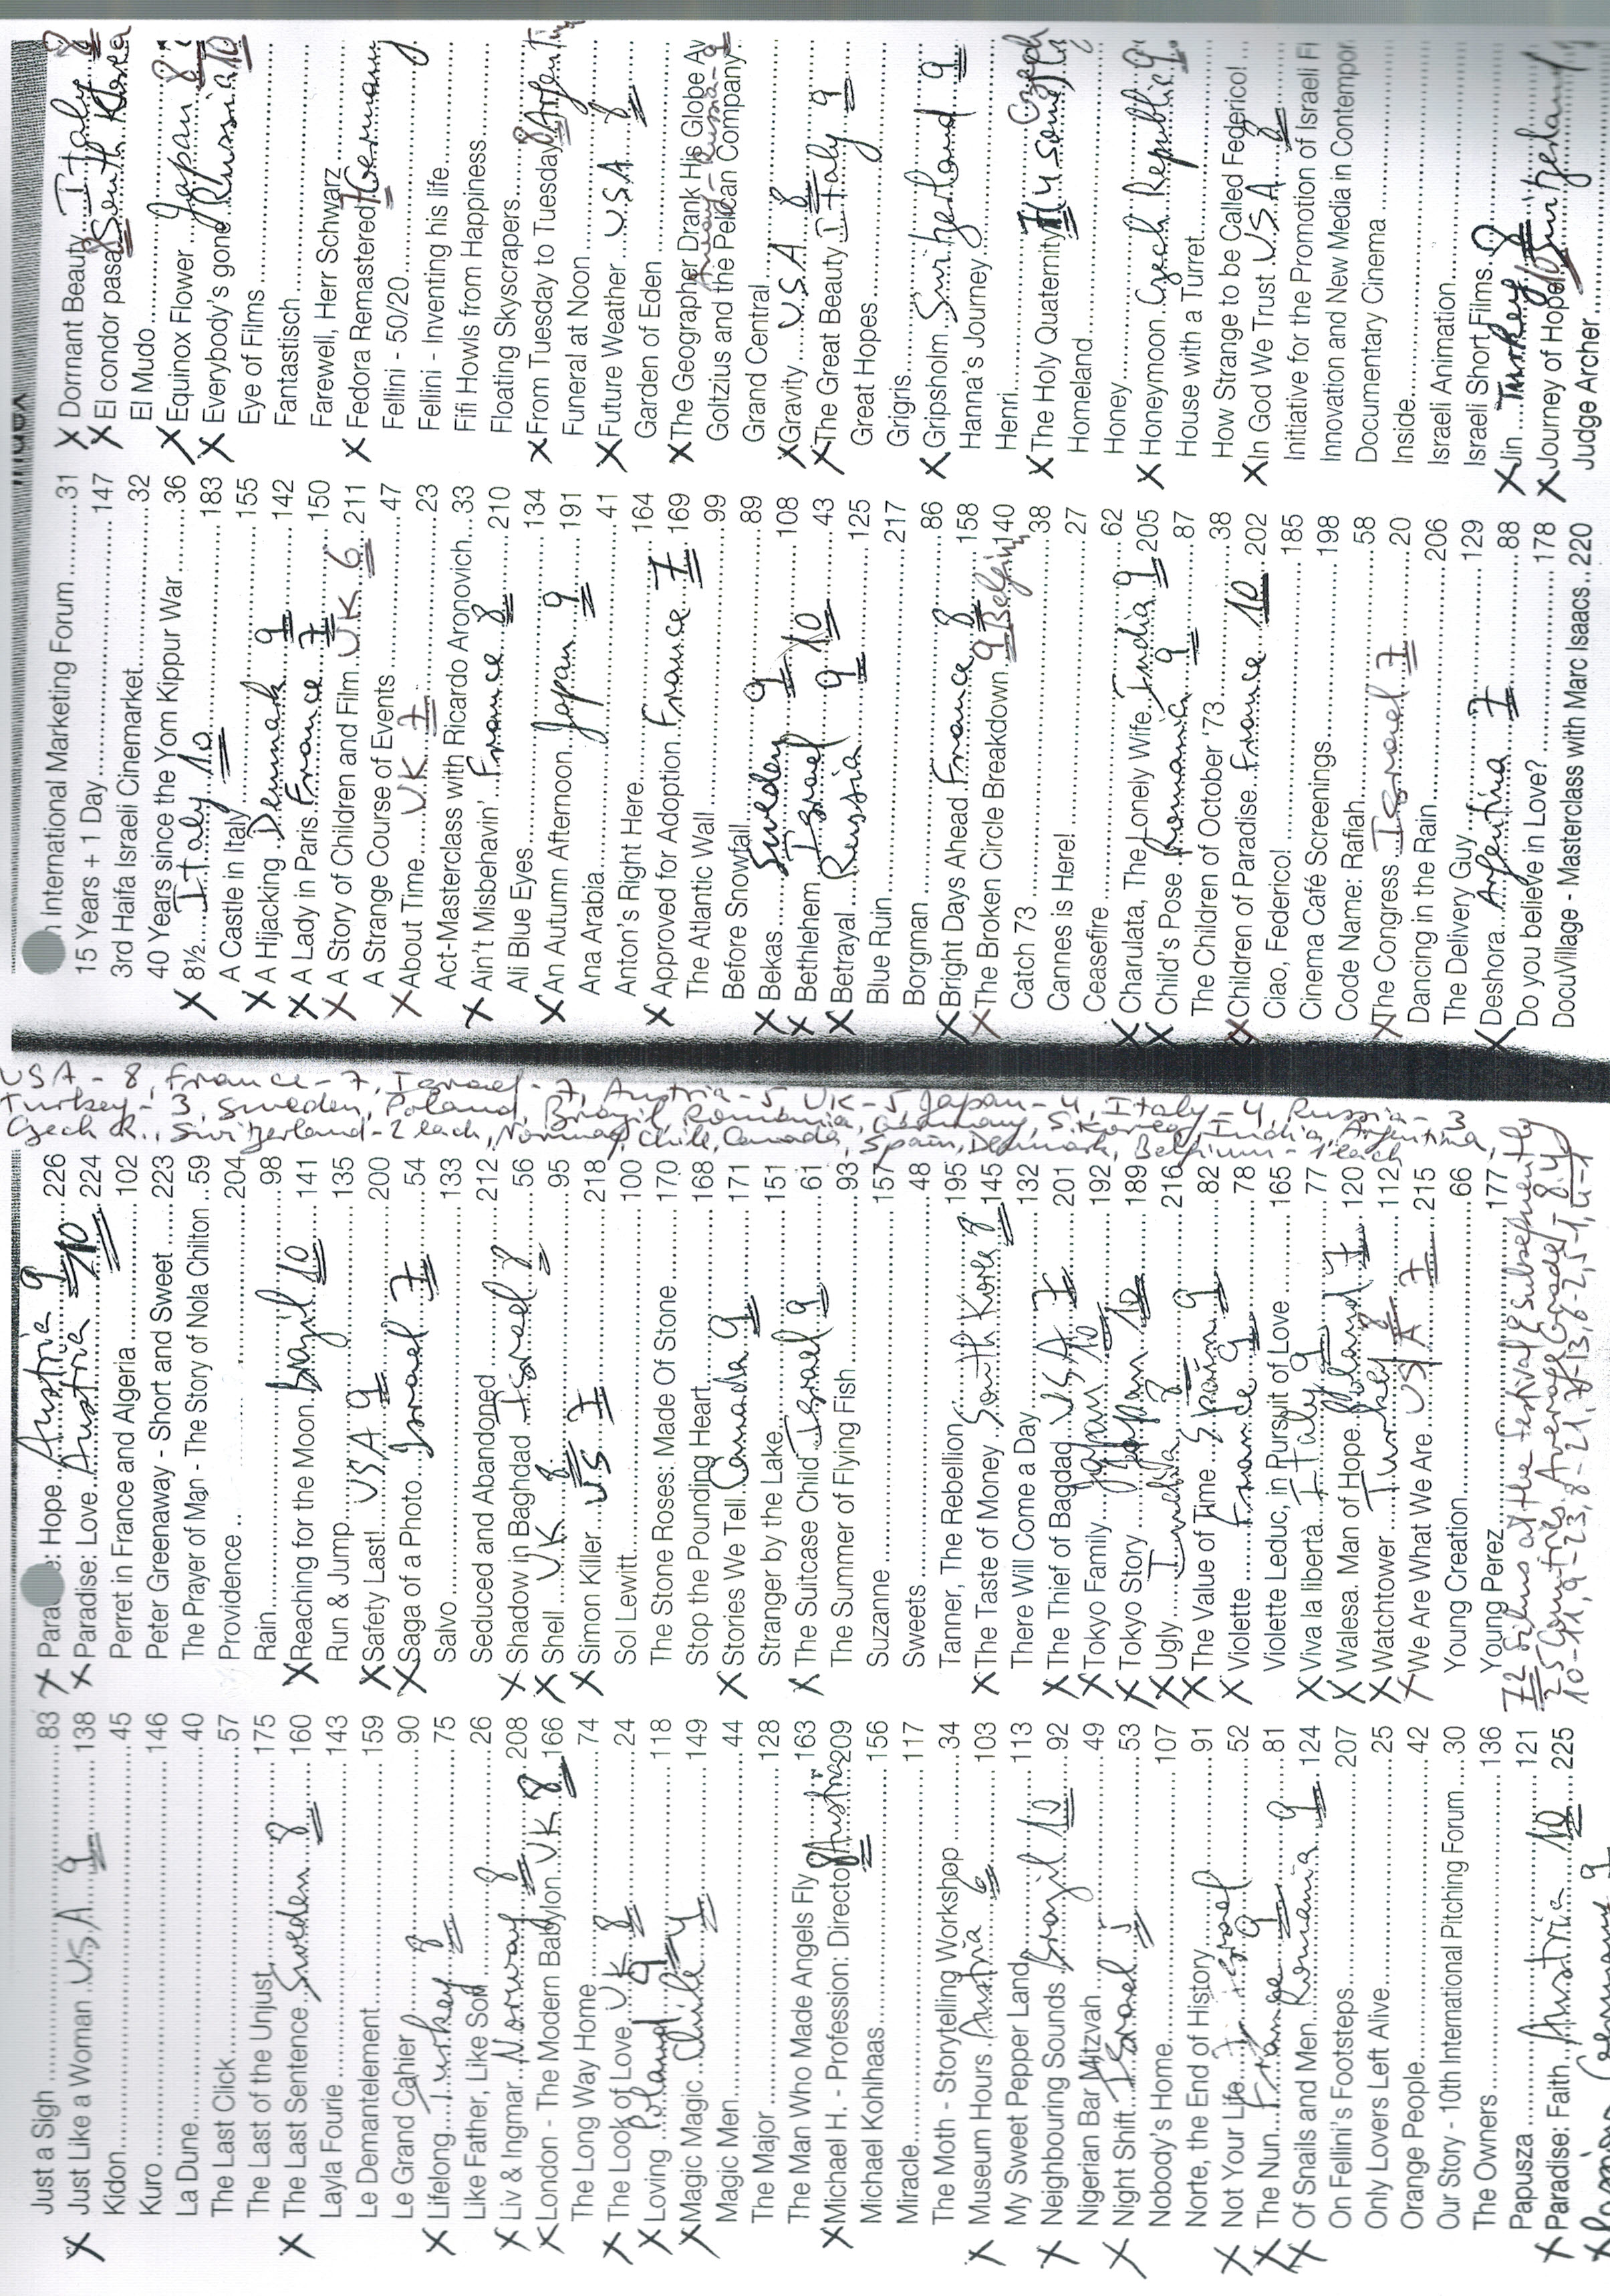 International Marketing Forum ........ 31
15 Years + 1 Day ........ 147
3rd Haifa Israeli Cinemarket ........ 32
40 Years since the Yom Kippur War ...... 36
X 8½ .... Italy 10 ........ 183
A Castle in Italy ........ 155
X A Hijacking .. Denmark 9 ... 142
X A Lady in Paris. France 7 ... 150
X A Story of Children and Film UK 6 . 211
A Strange Course of Events ........ 47
X About Time .... UK 7 ........ 23
Act-Masterclass with Ricardo Aronovich .. 33
X Ain't Misbehavin' .. France 8 ... 210
Ali Blue Eyes ........ 134
X An Autumn Afternoon. Japan 9 ... 191
Ana Arabia ........ 41
Anton's Right Here ........ 164
X Approved for Adoption. France 7 169
The Atlantic Wall ........ 99
Before Snowfall ........ 89
X Bekas .... Sweden 9 ... 108
X Bethlehem ... Israel 10 ... 43
X Betrayal .. Russia 9 ... 125
Blue Ruin ........ 217
Borgman ........ 86
X Bright Days Ahead France 8 ... 158
X The Broken Circle Breakdown . 9 Belgium 140
Catch 73 ........ 38
Cannes is Here! ........ 27
Ceasefire ........ 62
X Charulata, The Lonely Wife. India 9 . 205
X Child's Pose Romania 9 ... 87
The Children of October '73 ........ 38
X Children of Paradise. France 10 ... 202
Ciao, Federico! ........ 185
Cinema Café Screenings ........ 198
Code Name: Rafiah ........ 58
X The Congress .. Israel 7 ... 20
Dancing in the Rain ........ 206
The Delivery Guy ........ 129
X Deshora .. Argentina 7 ... 88
Do you believe in Love? ........ 178
DocuVillage - Masterclass with Marc Isaacs .. 220
X Dormant Beauty ... Italy 8
X El condor pasa 8 South Korea
El Mudo ........
X Equinox Flower ... Japan 8
X Everybody's gone Russia 10
Eye of Films ........
Fantastisch ........
Farewell, Herr Schwarz ........
X Fedora Remastered Germany
Fellini - 50/20 ........
Fellini - Inventing his life ........
Fifi Howls from Happiness ........
Floating Skyscrapers ........
X From Tuesday to Tuesday 8 Argentina
Funeral at Noon ........
X Future Weather ... USA 8
Garden of Eden ........
X The Geographer Drank His Globe Av
Away - Russia - 9
Goltzius and the Pelican Company
Grand Central ........
X Gravity ... USA 8
X The Great Beauty Italy 9
Great Hopes ........
Grigris ........
X Gripsholm . Switzerland 9
Hanna's Journey ........
Henri ........
X The Holy Quaternity Czech
Homeland ........
Honey ........
X Honeymoon. Czech Republic 9
House with a Turret ........
How Strange to be Called Federico! ...
X In God We Trust USA 8
Initiative for the Promotion of Israeli Fi
Innovation and New Media in Contempor
Documentary Cinema ........
Inside ........
Israeli Animation ........
Israeli Short Films ........
X Jin ... Turkey 8
X Journey of Hope 10 Switzerland
Judge Archer ........
Just a Sigh ........ 83
X Just Like a Woman USA 9 ... 138
Kidon ........ 45
Kuro ........ 146
La Dune ........ 40
The Last Click ........ 57
The Last of the Unjust ........ 175
X The Last Sentence Sweden 8 ... 160
Layla Fourie ........ 143
Le Demantelement ........ 159
Le Grand Cahier ........ 90
X Lifelong .... Turkey 8 ... 75
Like Father, Like Son ........ 26
X Liv & Ingmar .. Norway 8 ... 208
X London - The Modern Babylon UK 8 166
The Long Way Home ........ 74
X The Look of Love .. UK 8 ... 24
X Loving .... Poland 9 ... 118
X Magic Magic .. Chile 4 ... 149
Magic Men ........ 44
The Major ........ 128
The Man Who Made Angels Fly .. 163
X Michael H. - Profession: Director 8 Austria 209
Michael Kohlhaas ........ 156
Miracle ........ 117
The Moth - Storytelling Workshop ...... 34
X Museum Hours . Austria 6 ... 103
My Sweet Pepper Land ........ 113
X Neighbouring Sounds Brazil 10 ... 92
Nigerian Bar Mitzvah ........ 49
X Night Shift ... Israel 5 ... 53
Nobody's Home ........ 107
Norte, the End of History ........ 91
X Not Your Life ... Israel ... 52
X The Nun ... France 9 ... 81
X Of Snails and Men. Romania 9 . 124
On Fellini's Footsteps ........ 207
Only Lovers Left Alive ........ 25
Orange People ........ 42
Our Story - 10th International Pitching Forum .... 30
The Owners ........ 136
Papusza ........ 121
X Paradise: Faith ... Austria 10 ... 225
X Germany 9
X Para e: Hope .. Austria 9 ... 226
X Paradise: Love .. Austria 10 ... 224
Perret in France and Algeria ........ 102
Peter Greenaway - Short and Sweet .... 223
The Prayer of Man - The Story of Nola Chilton .. 59
Providence .. ........ 204
Rain ........ 98
X Reaching for the Moon. Brazil 10 ... 141
Run & Jump ........ 135
X Safety Last! ... USA 9 ... 200
X Saga of a Photo . Israel 7 ... 54
Salvo ........ 133
Seduced and Abandoned ........ 212
X Shadow in Baghdad . Israel 8 ... 56
X Shell .... UK 8 ... 95
X Simon Killer .. US 7 ... 218
Sol Lewitt ........ 100
The Stone Roses: Made Of Stone ........ 170
Stop the Pounding Heart ........ 168
X Stories We Tell Canada 9 ... 171
Stranger by the Lake ........ 151
X The Suitcase Child Israel 9 ... 61
The Summer of Flying Fish ........ 93
Suzanne ........ 157
Sweets ........ 48
Tanner, The Rebellion ........ 195
X The Taste of Money . South Korea 8 . 145
There Will Come a Day ........ 132
X The Thief of Bagdad .. USA 7 ... 201
X Tokyo Family .... Japan 10 ... 192
X Tokyo Story .... Japan 10 ... 189
X Ugly .... India 8 ... 216
X The Value of Time .. Spain 9 ... 82
X Violette .... France 9 ... 78
Violette Leduc, in Pursuit of Love ........ 165
X Viva la libertà .. Italy 9 ... 77
X Walesa. Man of Hope. Poland 7 . 120
X Watchtower .. Turkey 8 ... 112
X We Are What We Are . USA 7 ... 215
Young Creation ........ 66
Young Perez ........ 177
72 films at the festival & subsequently
25 Countries, Average Grade - 8.4
10-11, 9-23, 8-21, 7-13, 6-2, 5-1, 4-1
USA - 8, France - 7, Israel - 7, Austria - 5, UK - 5, Japan - 4, Italy - 4, Russia - 3
Turkey - 3, Sweden, Poland, Brazil, Romania, Germany, S. Korea, India, Argentina,
Czech R., Switzerland - 2 each, Norway, Chile, Canada, Spain, Denmark, Belgium - 1 each